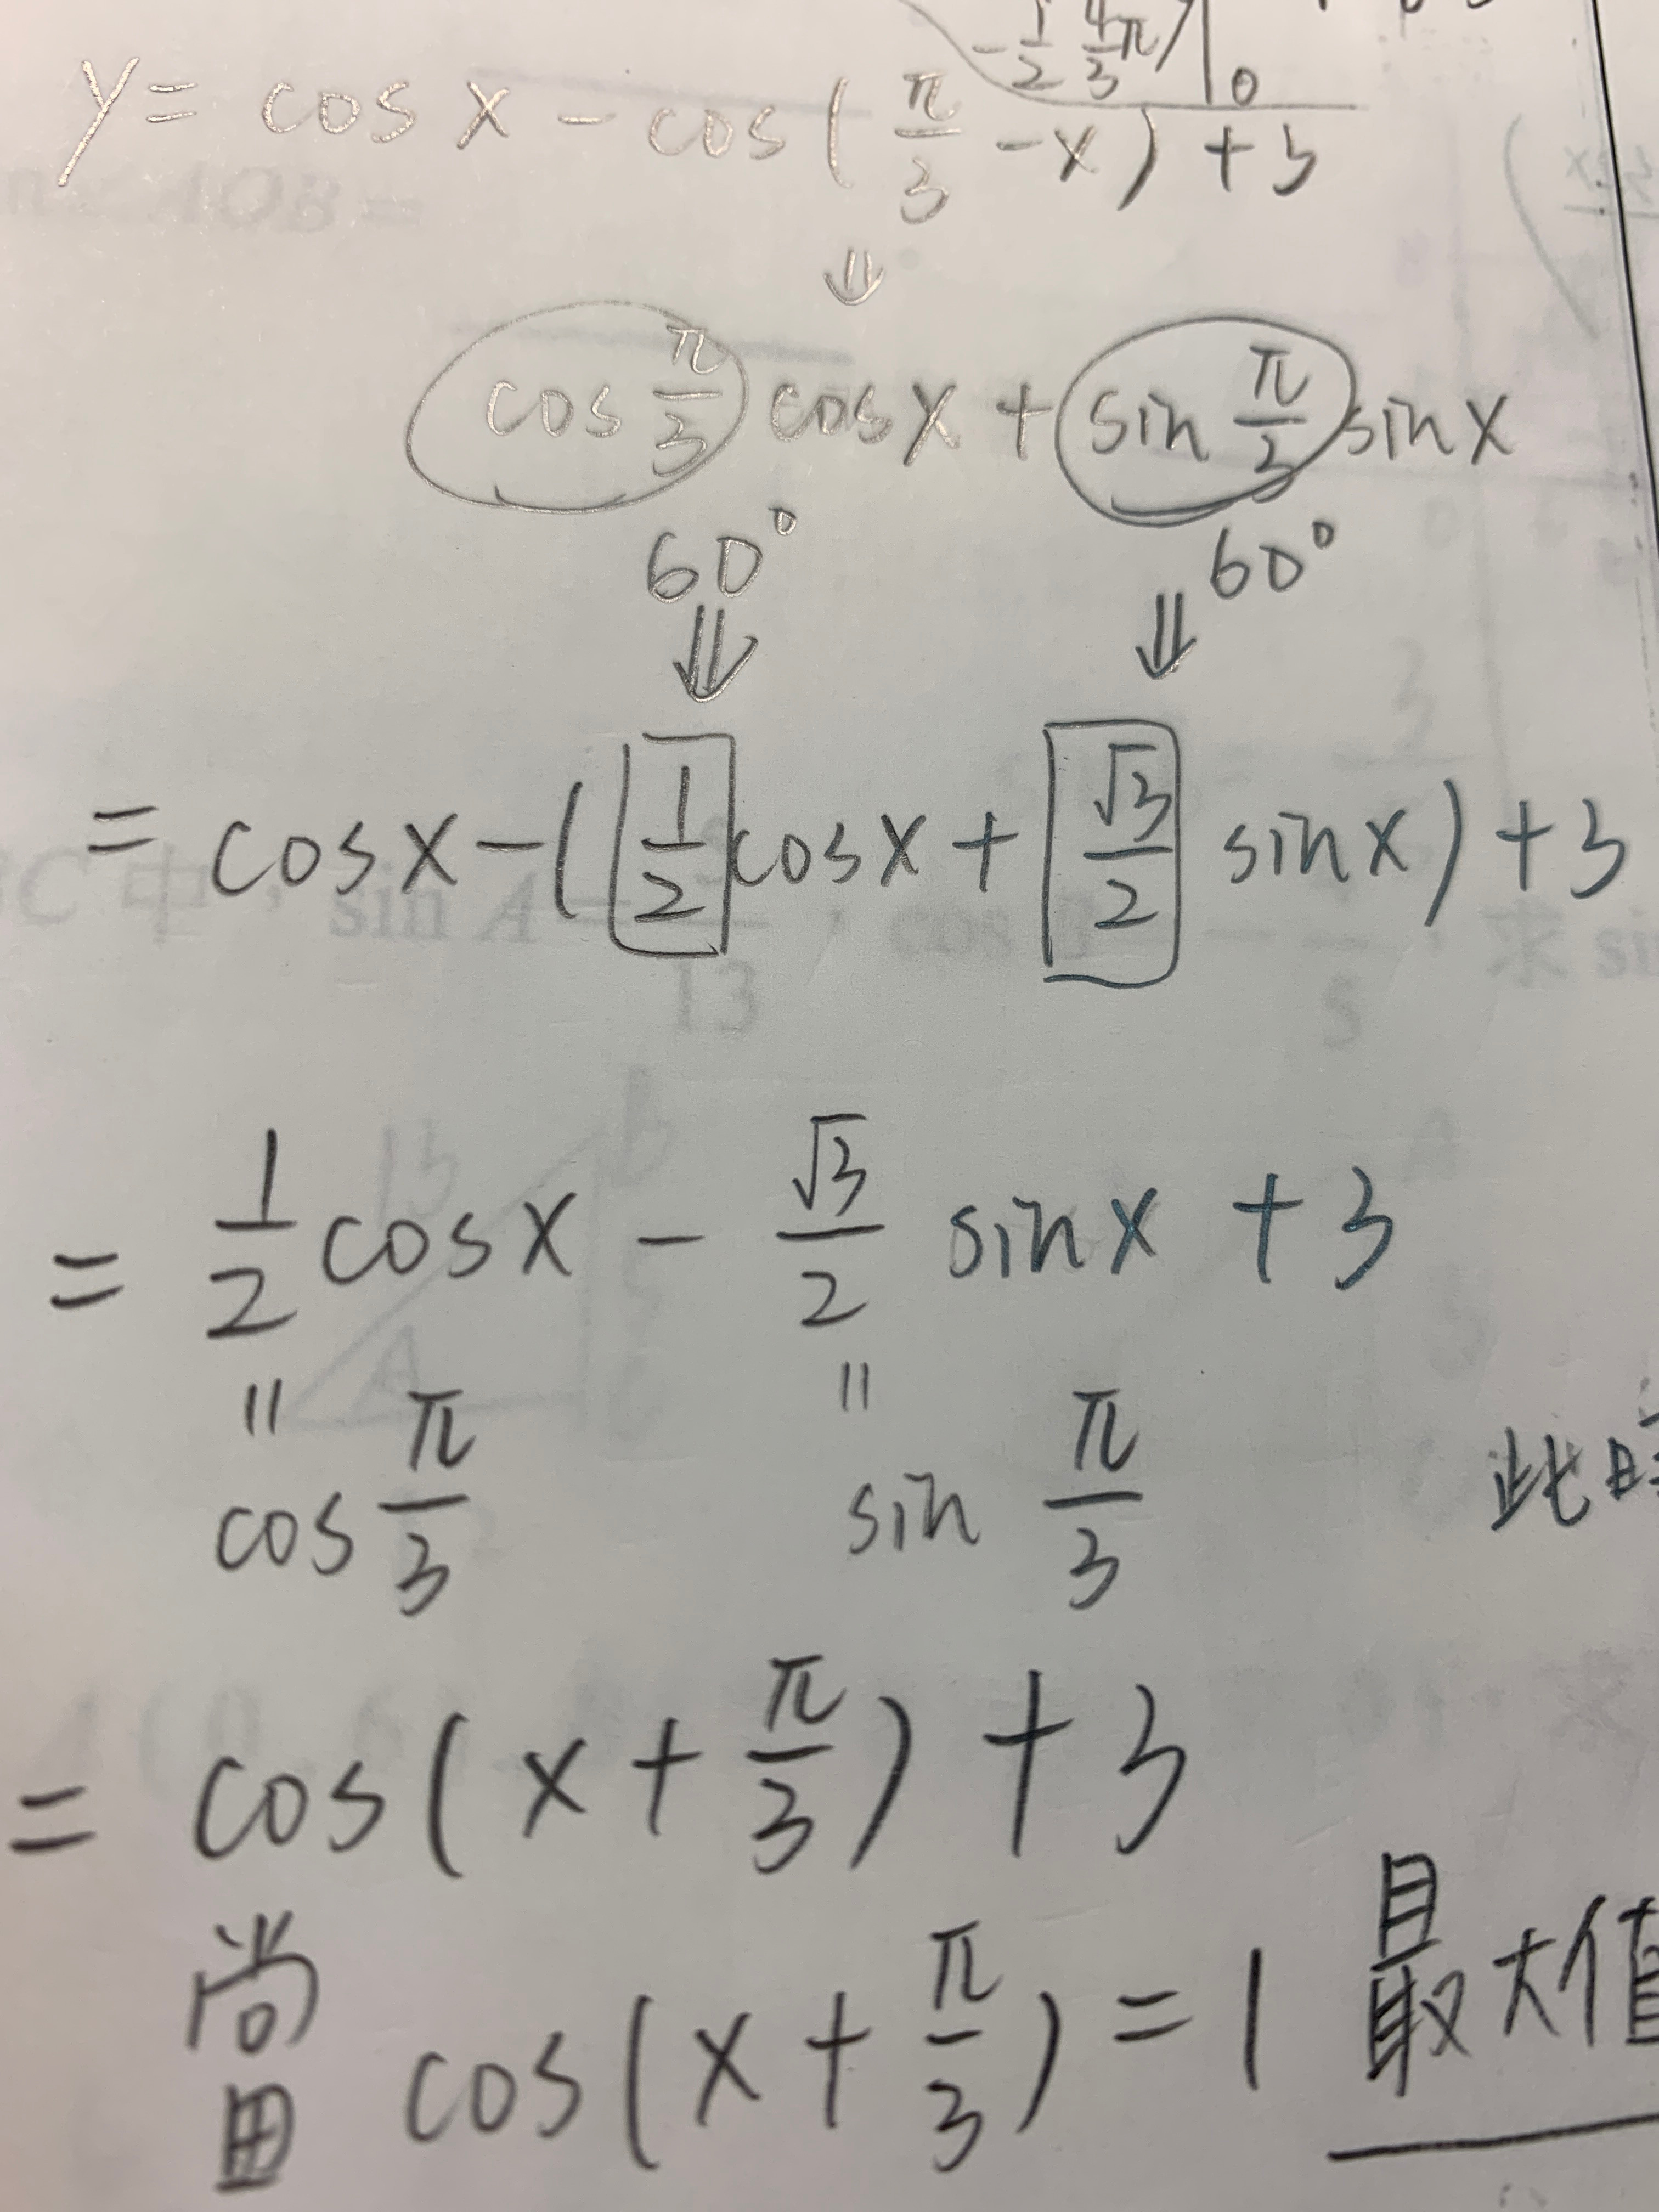 -1/2 4/3π) | 0
y = cos x - cos(π/3 - x) + 3
⇓
cos π/3 cos x + sin π/3 sin x
60° 60°
⇓ ⇓
= cos x - (1/2 cos x + √3/2 sin x) + 3
BC 中, sin A = /13, cos = - /5, 求 si
= 1/2 cos x - √3/2 sin x + 3
|| ||
cos π/3 sin π/3
此時
= cos(x + π/3) + 3
當 cos(x + π/3) = 1 最大值